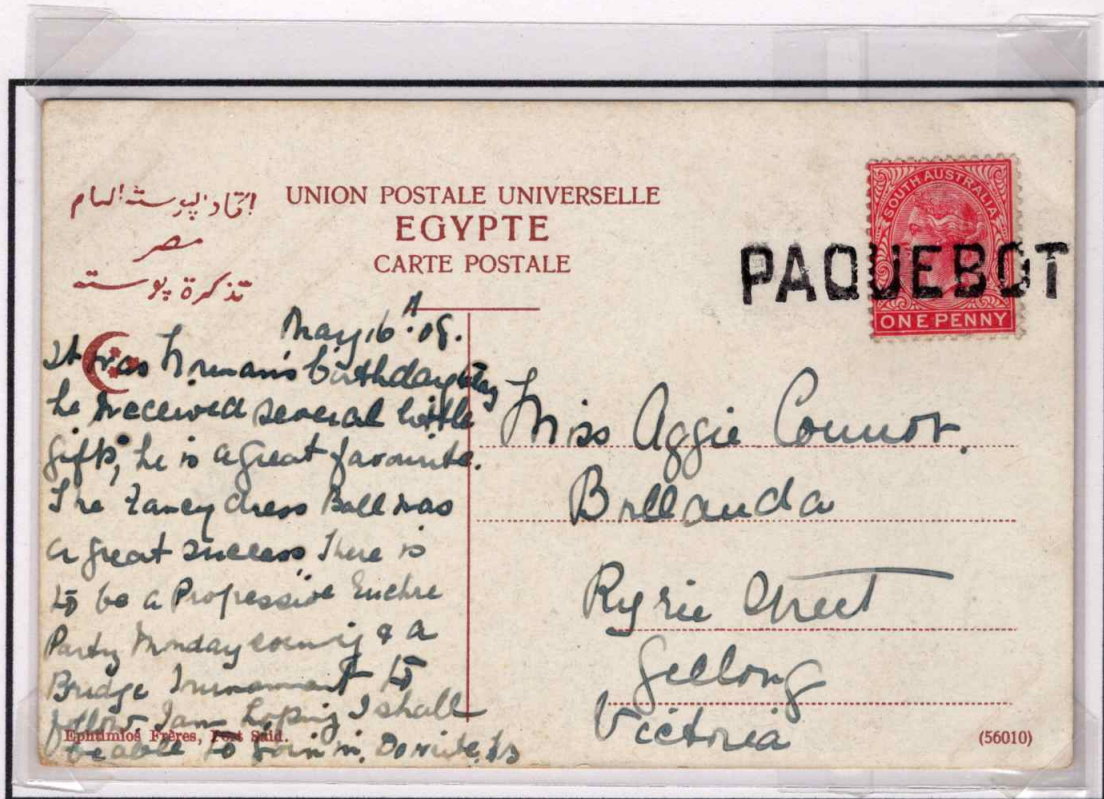 اتحاد البوسته العام
مصر
تذكرة بوسته
UNION POSTALE UNIVERSELLE
EGYPTE
CARTE POSTALE
SOUTH AUSTRALIA
ONE PENNY
PAQUEBOT
May 16th 08.
It was Norman's birthday
he received several little
gifts, he is a great favourite.
The Fancy dress Ball was
a great success There is
to be a Progressive Euchre
Party Monday evening & a
Bridge Tournament to
follow I am hoping I shall
be able to join in. Do write to
Ephtimios Frères, Port Said.
Miss Aggie Connor.
Ryrie Street
Geelong
Victoria
(56010)